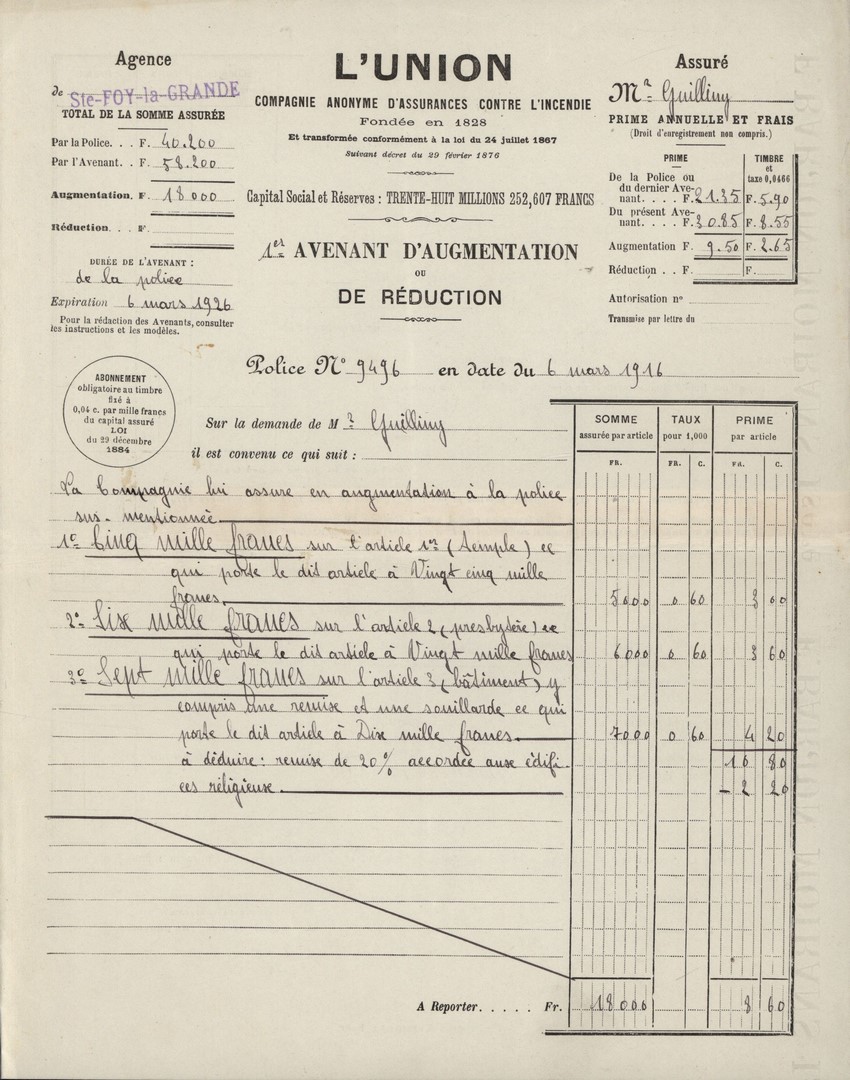 Agence
de Ste-FOY-la-GRANDE
TOTAL DE LA SOMME ASSURÉE
Par la Police. . . F. 40.200
Par l'Avenant. . F. 58.200
Augmentation. F. 18 000
Réduction. . . F.
DURÉE DE L'AVENANT :
de la police
Expiration 6 mars 1926
Pour la rédaction des Avenants, consulter
les instructions et les modèles.
L'UNION
COMPAGNIE ANONYME D'ASSURANCES CONTRE L'INCENDIE
Fondée en 1828
Et transformée conformément à la loi du 24 juillet 1867
Suivant décret du 29 février 1876
Capital Social et Réserves : TRENTE-HUIT MILLIONS 252,607 FRANCS
1er AVENANT D'AUGMENTATION
OU
DE RÉDUCTION
Assuré
Mr Guilliny
PRIME ANNUELLE ET FRAIS
(Droit d'enregistrement non compris.)
PRIME TIMBRE
et
taxe 0,0466
De la Police ou
du dernier Ave-
nant. . . . . F. 21.35 F. 5.90
Du présent Ave-
nant. . . . . F. 30.85 F. 8.55
Augmentation F. 9.50 F. 2.65
Réduction . . F. F.
Autorisation n°
Transmise par lettre du
Police N° 9496 en date du 6 mars 1916
ABONNEMENT
obligatoire au timbre
fixé à
0,04 c. par mille francs
du capital assuré
LOI
du 29 décembre
1884
Sur la demande de M r Guilliny
il est convenu ce qui suit :
SOMME TAUX PRIME
assurée par article pour 1,000 par article
FR. FR. C. FR. C.
La Compagnie lui assure en augmentation à la police
sus-mentionnée
1° Cinq mille francs sur l'article 1er (temple) ce
qui porte le dit article à Vingt cinq mille
francs. 5000 0 60 3 00
2° Six mille francs sur l'article 2 (presbytère) ce
qui porte le dit article à Vingt mille francs 6000 0 60 3 60
3° Sept mille francs sur l'article 3 (bâtiment) y
compris une remise et une souillarde ce qui
porte le dit article à Dix mille francs. 7000 0 60 4 20
à déduire : remise de 20% accordée aux édifi- 10 80
ces religieux. - 2 20
A Reporter. . . . . Fr. 18000 8 60